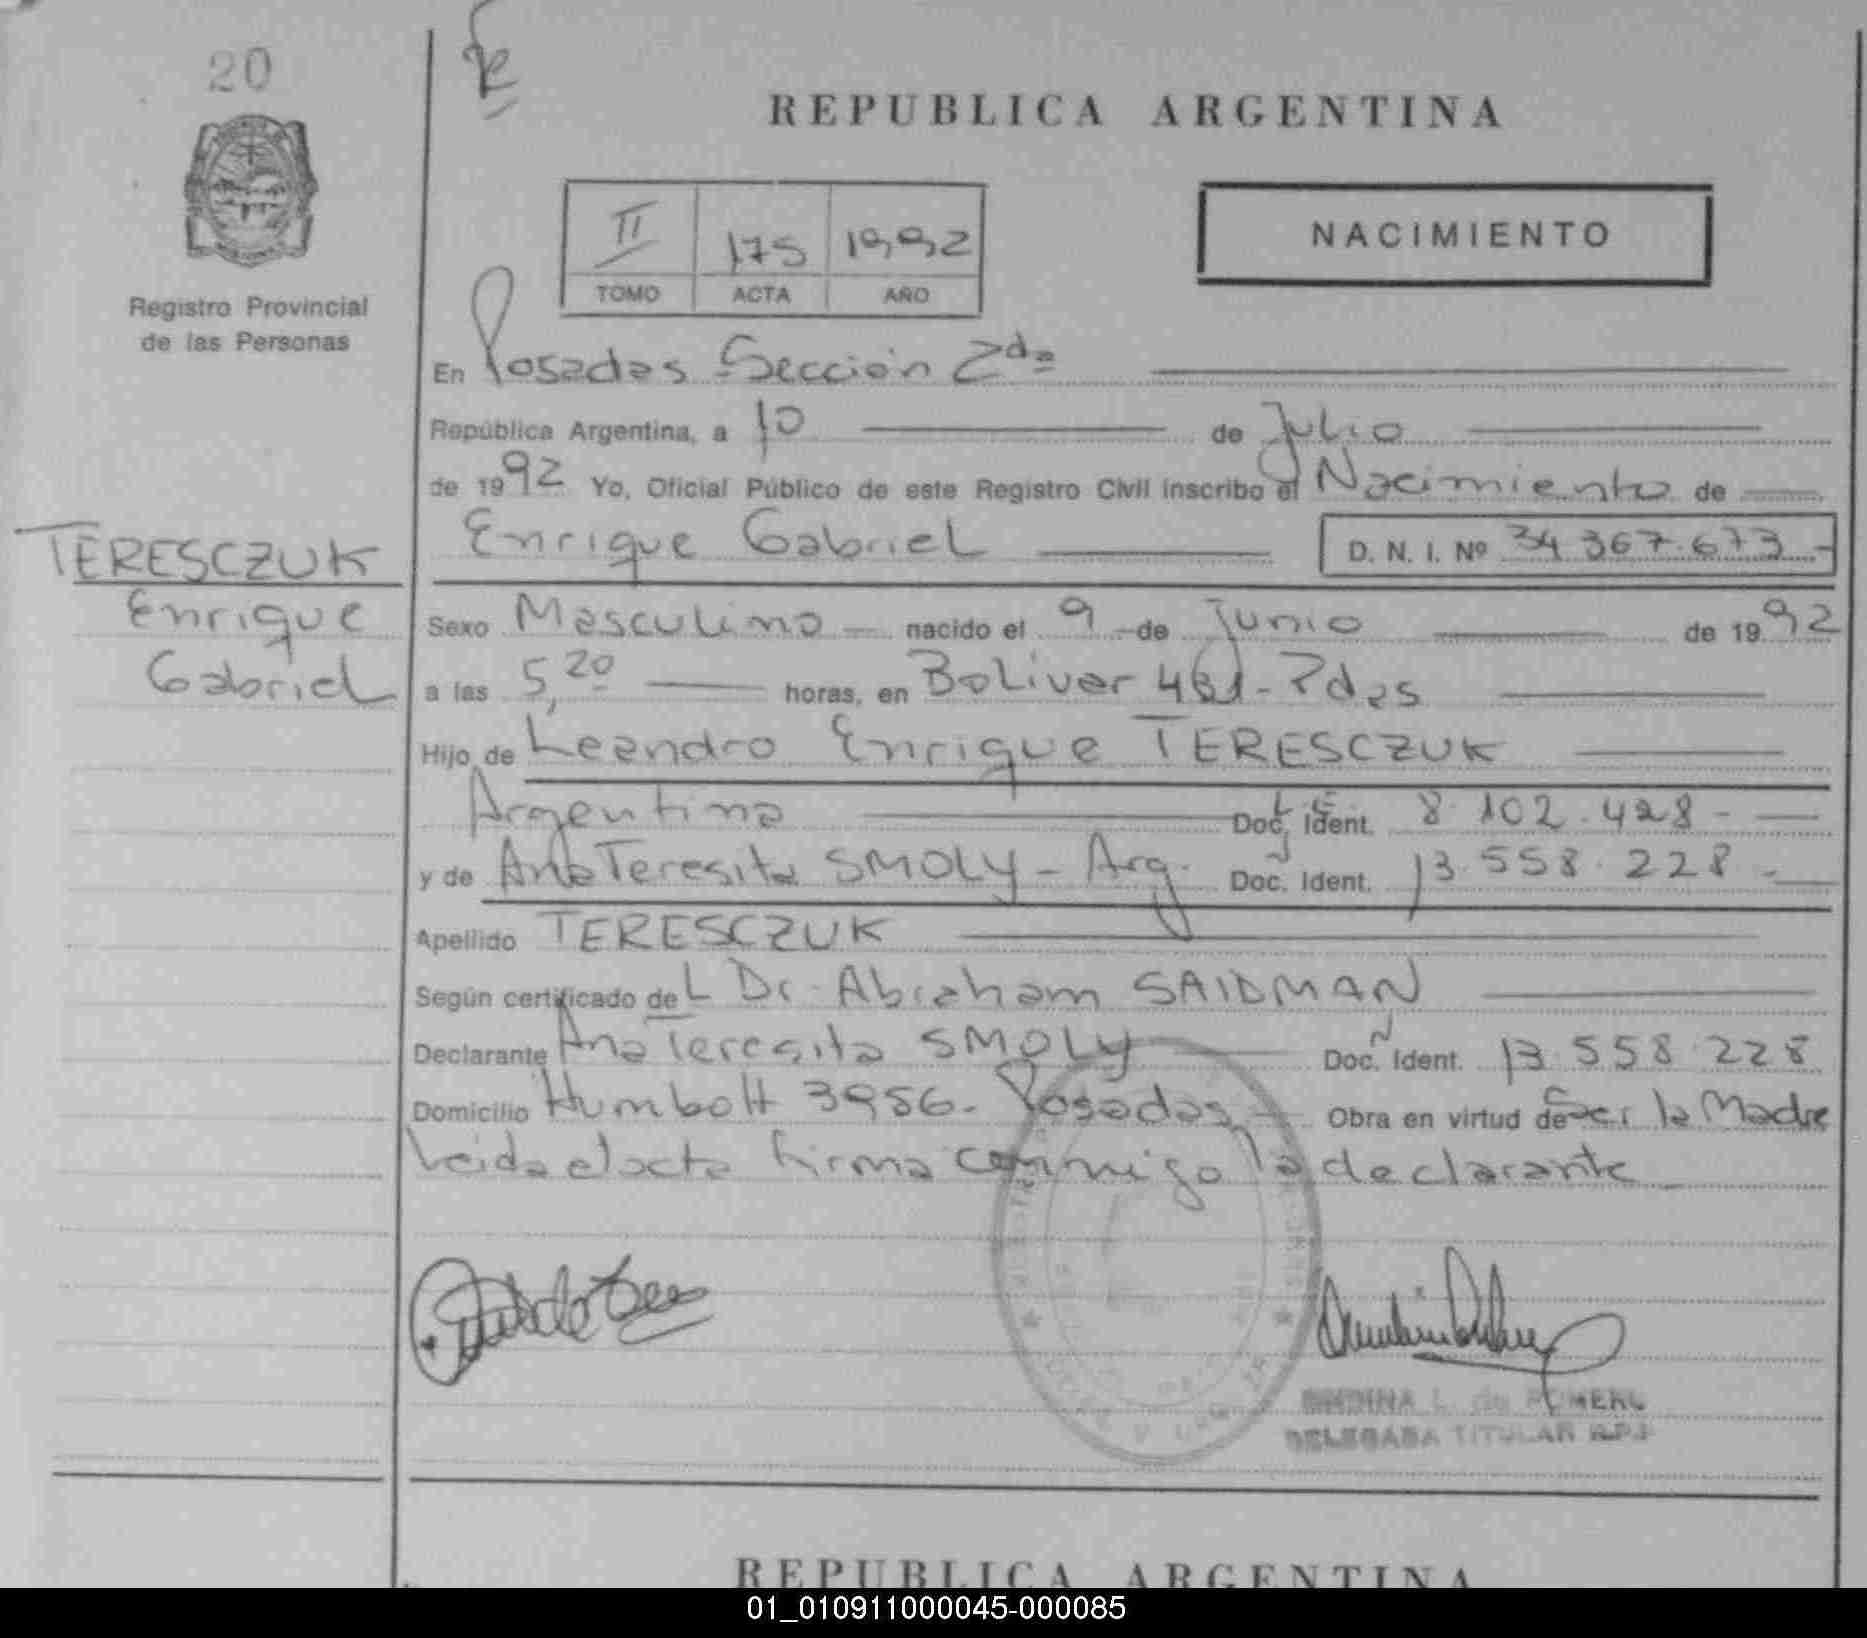 20
REPUBLICA ARGENTINA
II 175 1992
TOMO ACTA AÑO
NACIMIENTO
Registro Provincial
de las Personas
En Posadas Sección 2da
República Argentina, a 10 de Julio
de 1992 Yo, Oficial Público de este Registro Civil inscribo el Nacimiento de
Enrique Gabriel D. N. I. Nº 34 367.673
TERESCZUK
Enrique
Gabriel
Sexo Masculino nacido el 9 de Junio de 1992
a las 5,20 horas, en Bolivar - Pdas
Hijo de Leandro Enrique TERESCZUK
Argentina Doc. Ident. L.E. 8.102.428
y de Ana Teresita SMOLY - Arg. Doc. Ident. 13.558.228
Apellido TERESCZUK
Según certificado del Dr. Abraham SAIDMAN
Declarante Ana Teresita SMOLY Doc. Ident. 13.558.228
Domicilio Humbolt 3956. Posadas Obra en virtud de Ser la Madre
Leida el acta firma conmigo la declarante
L. de ROMERO
DELEGADA TITULAR R.P.P.
REPUBLICA ARGENTINA
01_010911000045-000085